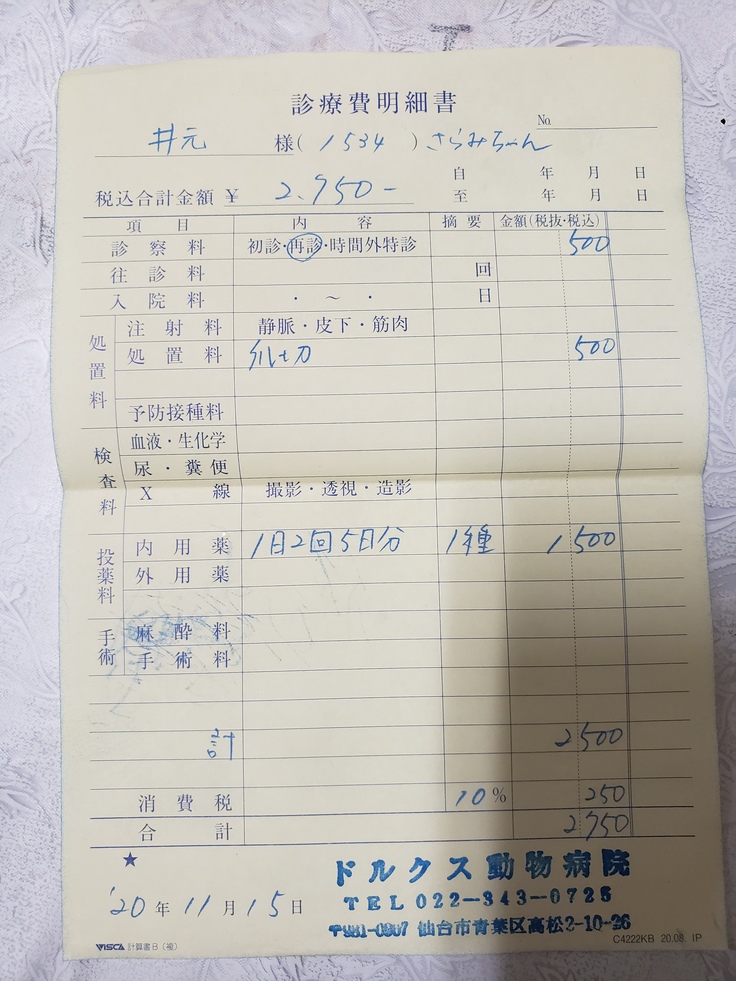 診療費明細書
No.
井元 様(1534)さらみちゃん
自 年 月 日
税込合計金額 ¥ 2.750-
至 年 月 日
項目 内容 摘要 金額(税抜・税込)
診察料 初診・再診・時間外特診 500
往診料 回
入院料 ・ ~ ・ 日
処置料
注射料 静脈・皮下・筋肉
処置料 爪切 500
予防接種料
検査料
血液・生化学
尿・糞便
X線 撮影・透視・造影
投薬料
内用薬 1日2回5日分 1種 1500
外用薬
手術
麻酔料
手術料
計 2500
消費税 10% 250
合計 2750
★
ドルクス動物病院
'20年11月15日
TEL 022-343-0725
〒981-0907 仙台市青葉区高松2-10-26
VISCA 計算書B(複)
C4222KB 20.08. IP